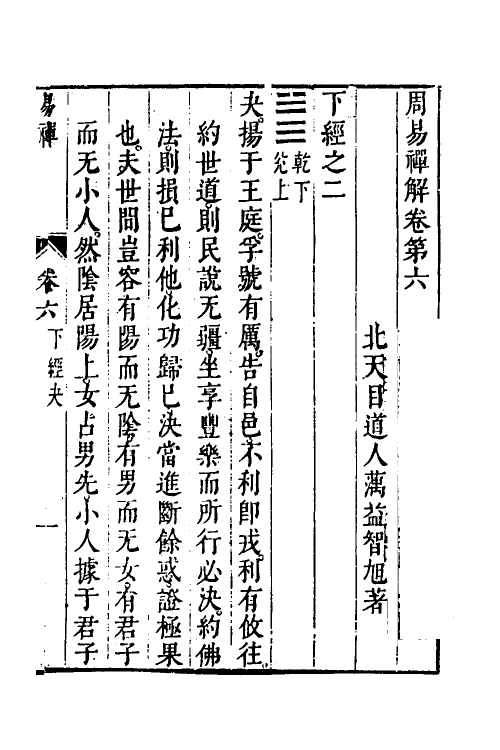 周易禪解卷第六
北天目道人蕅益智旭著
下經之二
䷪ 乾下兌上
夬。揚于王庭。孚號有厲。告自邑。不利卽戎。利有攸往。
約世道。則民說无疆。坐享豐樂而所行必決。約佛
法。則損已利他。化功歸已。決當進斷餘惑。證極果
也。夫世間豈容有陽而无陰。有男而无女。有君子
而无小人。然陰居陽上。女占男先。小人據于君子
易禪 卷六 下經夬 一